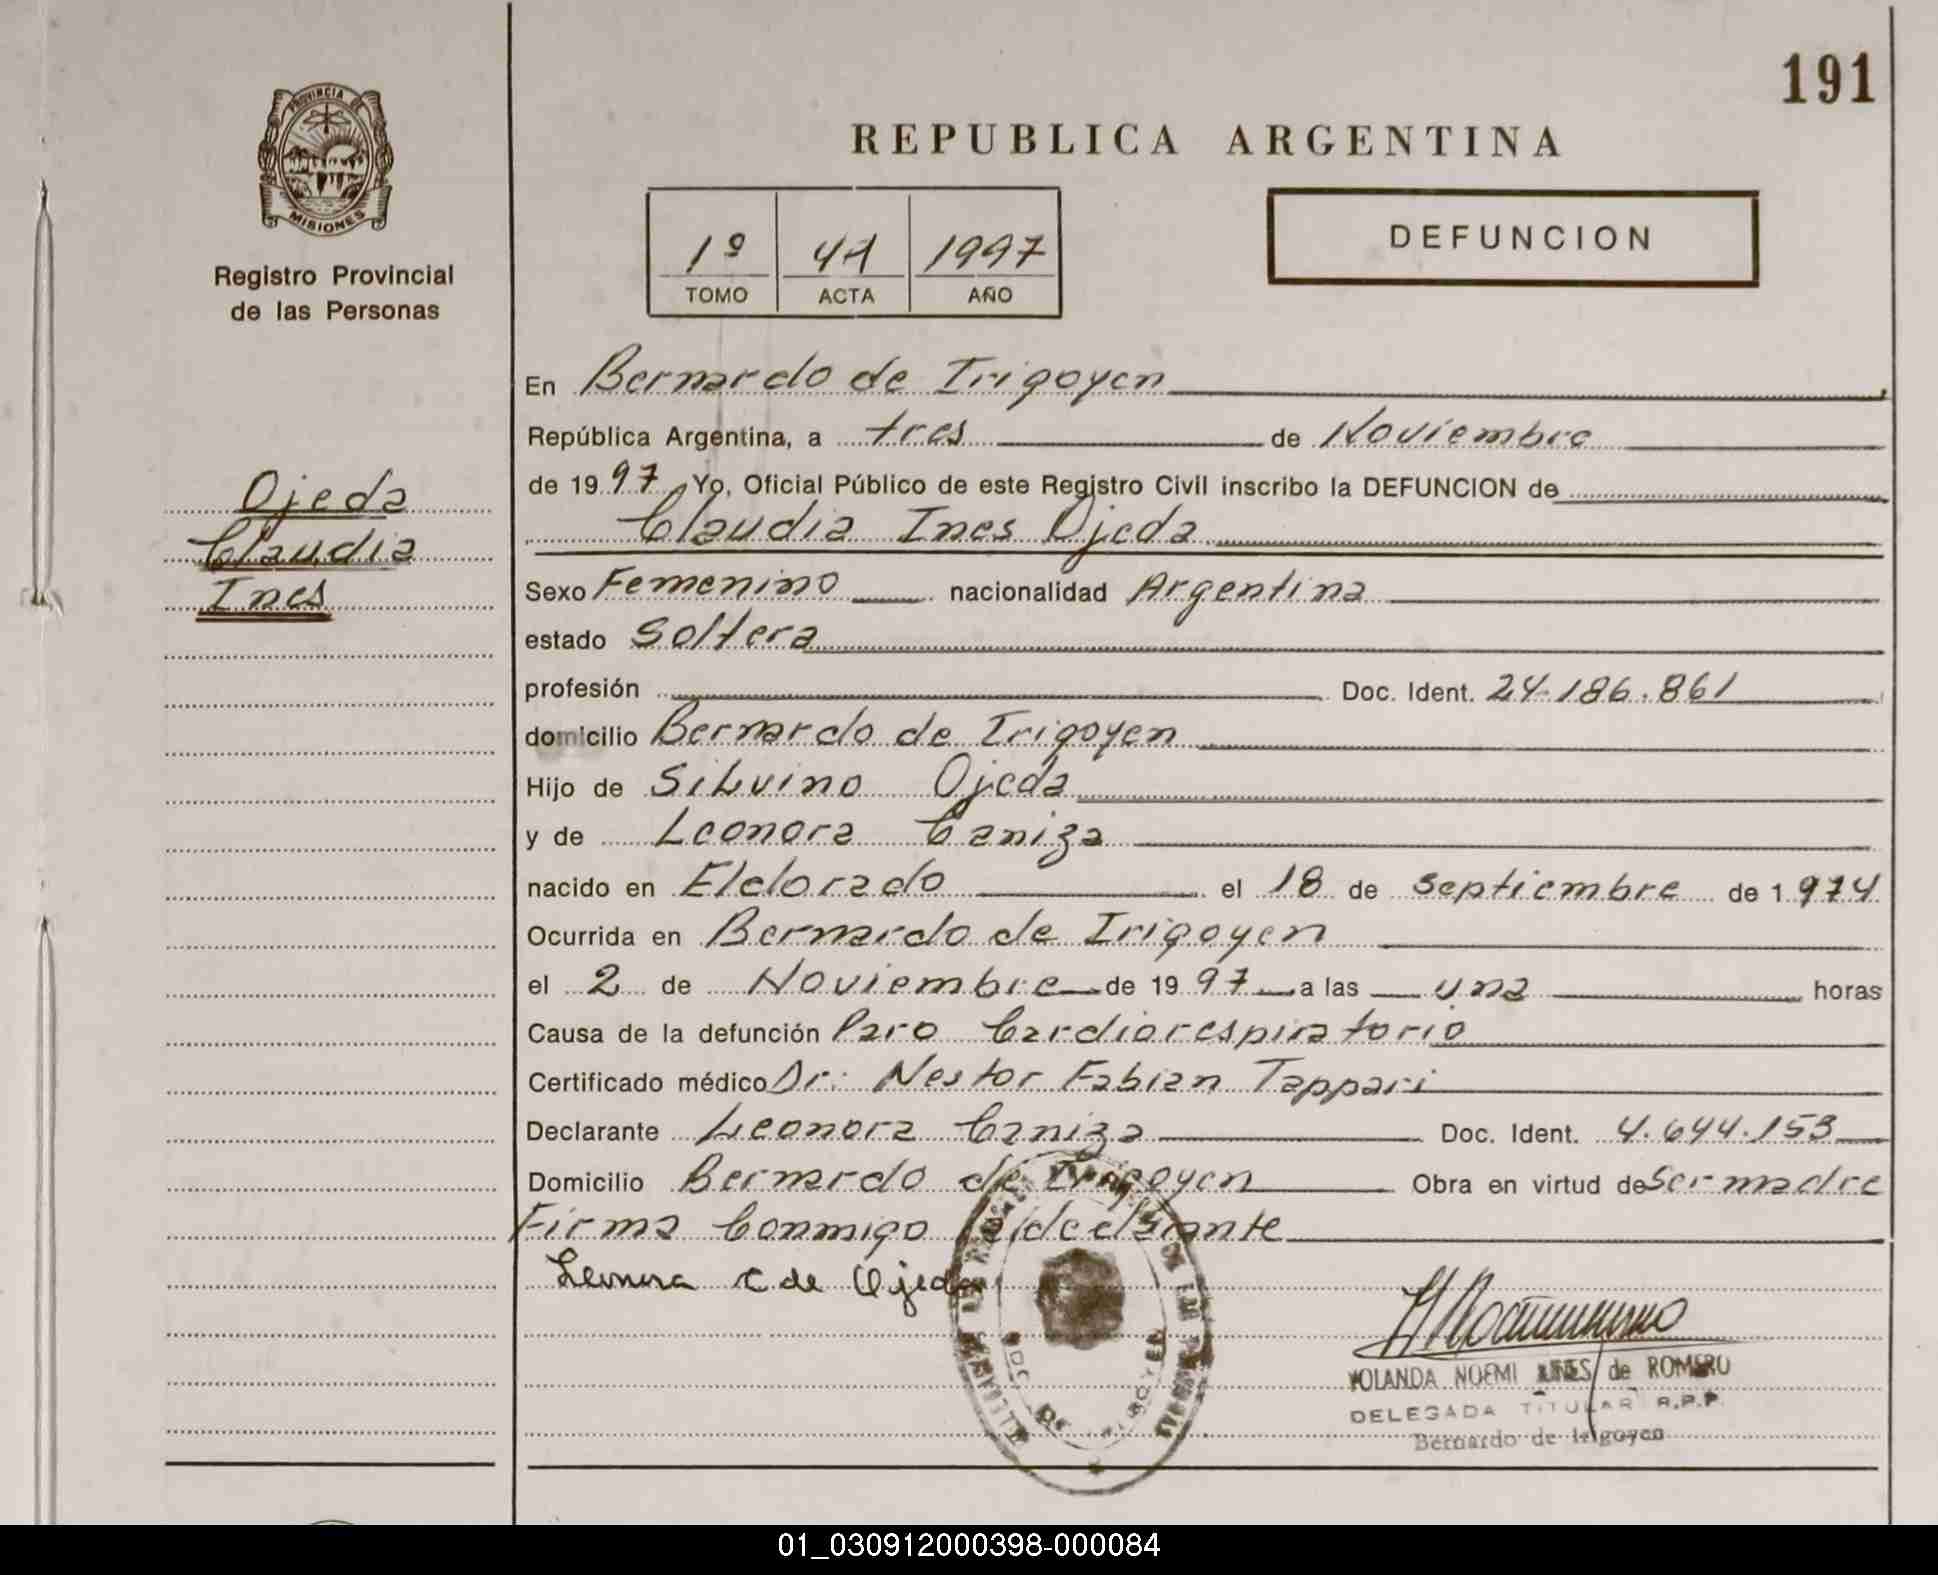 191
PROVINCIA DE
MISIONES
Registro Provincial
de las Personas
REPUBLICA ARGENTINA
1º 41 1997
TOMO ACTA AÑO
DEFUNCION
Ojeda
Claudia
Ines
En Bernardo de Irigoyen,
República Argentina, a tres de Noviembre
de 1997 Yo, Oficial Público de este Registro Civil inscribo la DEFUNCION de
Claudia Ines Ojeda
Sexo Femenino nacionalidad Argentina
estado Soltera
profesión Doc. Ident. 24.186.861
domicilio Bernardo de Irigoyen
Hijo de Silvino Ojeda
y de Leonora Caniza
nacido en Eldorado el 18 de septiembre de 1.974
Ocurrida en Bernardo de Irigoyen
el 2 de Noviembre de 1997 a las una horas
Causa de la defunción Paro Cardiorespiratorio
Certificado médico Dr: Nestor Fabian Tappari
Declarante Leonora Caniza Doc. Ident. 4.644.153
Domicilio Bernardo de Irigoyen Obra en virtud de Ser madre
Firma Conmigo la declarante
Leonora C de Ojeda
YOLANDA NOEMI de ROMERO
DELEGADA TITULAR R.P.P.
Bernardo de Irigoyen
01_030912000398-000084